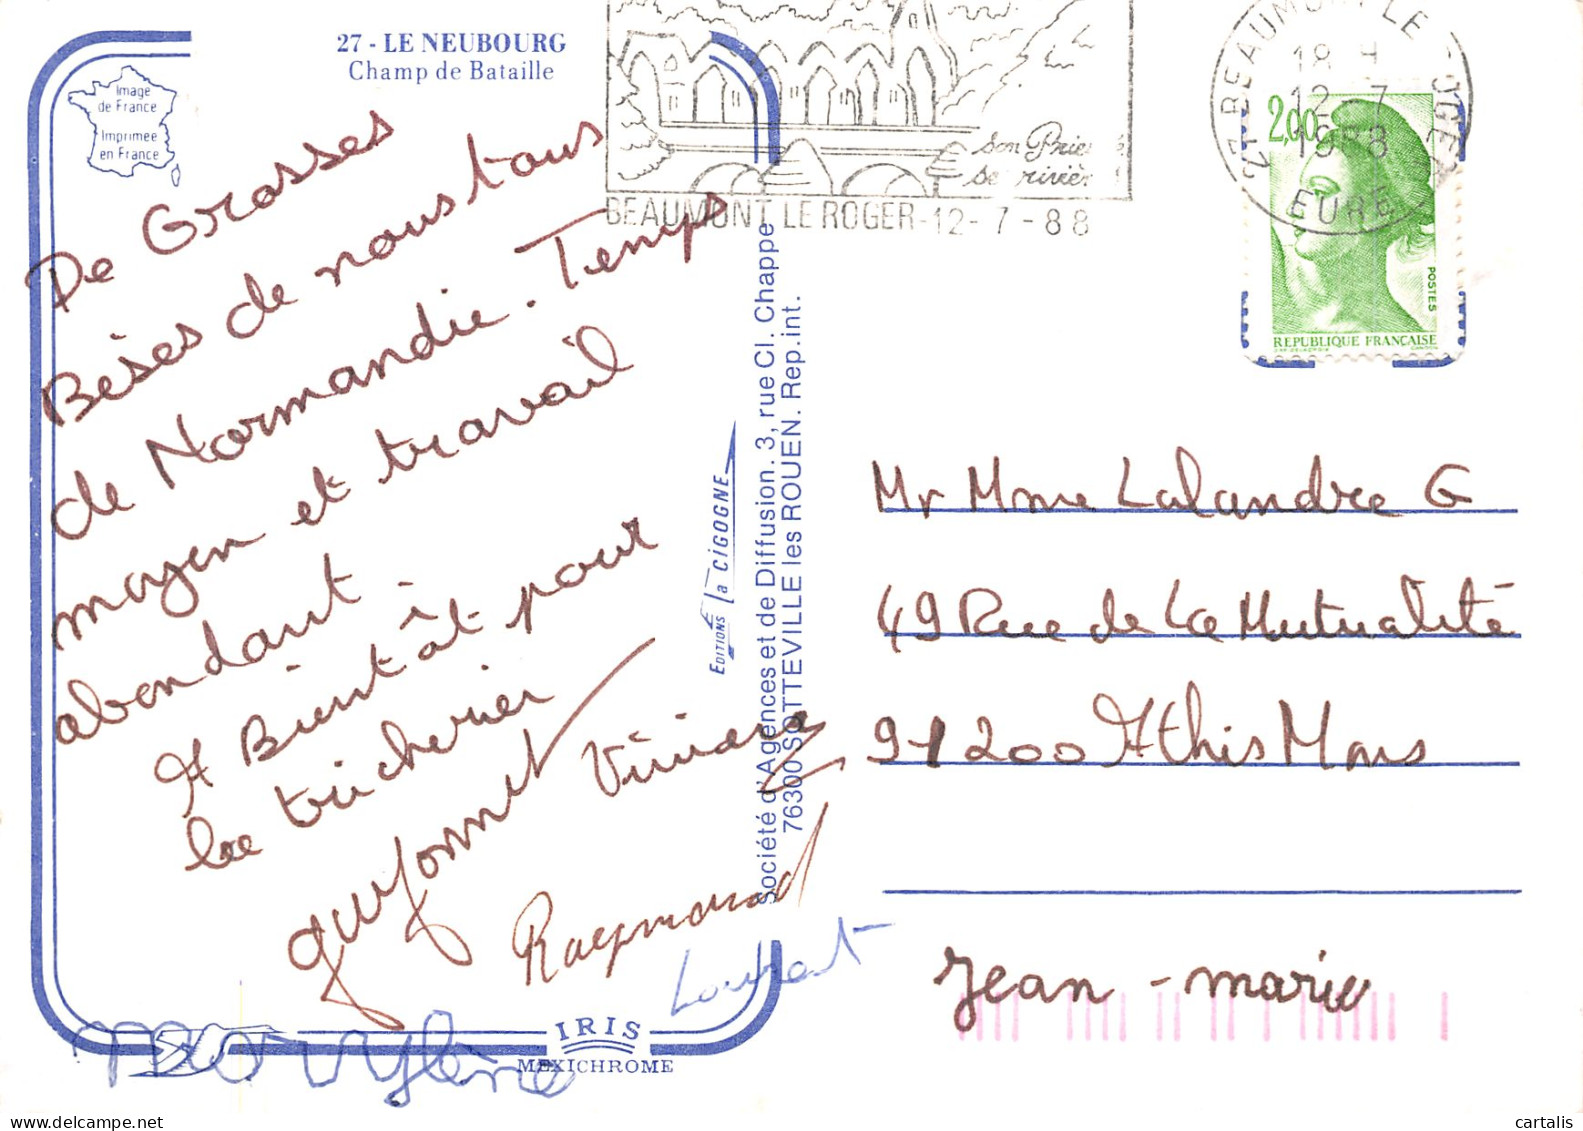 27 - LE NEUBOURG
Champ de Bataille
Image
de France
Imprimée
en France
De Grosses
Bèses de nous tous
de Normandie. Temps
moyen et travail
abondant.
A Bientôt pour
le tricherier
Viviane
Raymond
Laurent
Marylène
Jean-marie
EDITIONS la CIGOGNE
Société d'Agences et de Diffusion. 3, rue Cl. Chappe
76300 SOTTEVILLE les ROUEN. Rep. int.
IRIS
MEXICHROME
son Prieuré
se rivière
BEAUMONT LE ROGER-12-7-88
27 BEAUMONT LE ROGER
18 H
12-7
1988
EURE
2,00
POSTES
REPUBLIQUE FRANÇAISE
Mr Mme Lalandre G
49 Rue de La Mutualité
91200 Athis Mons
cartalis
www.delcampe.net